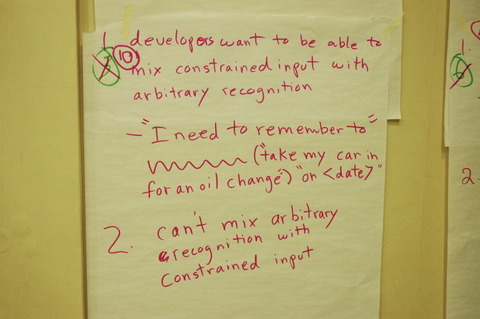 1. developers want to be able to
10 mix constrained input with
arbitrary recognition
- "I need to remember to"
(“take my car in
for an oil change") "on <date>"
2. can't mix arbitrary
recognition with
constrained input
1.
2.